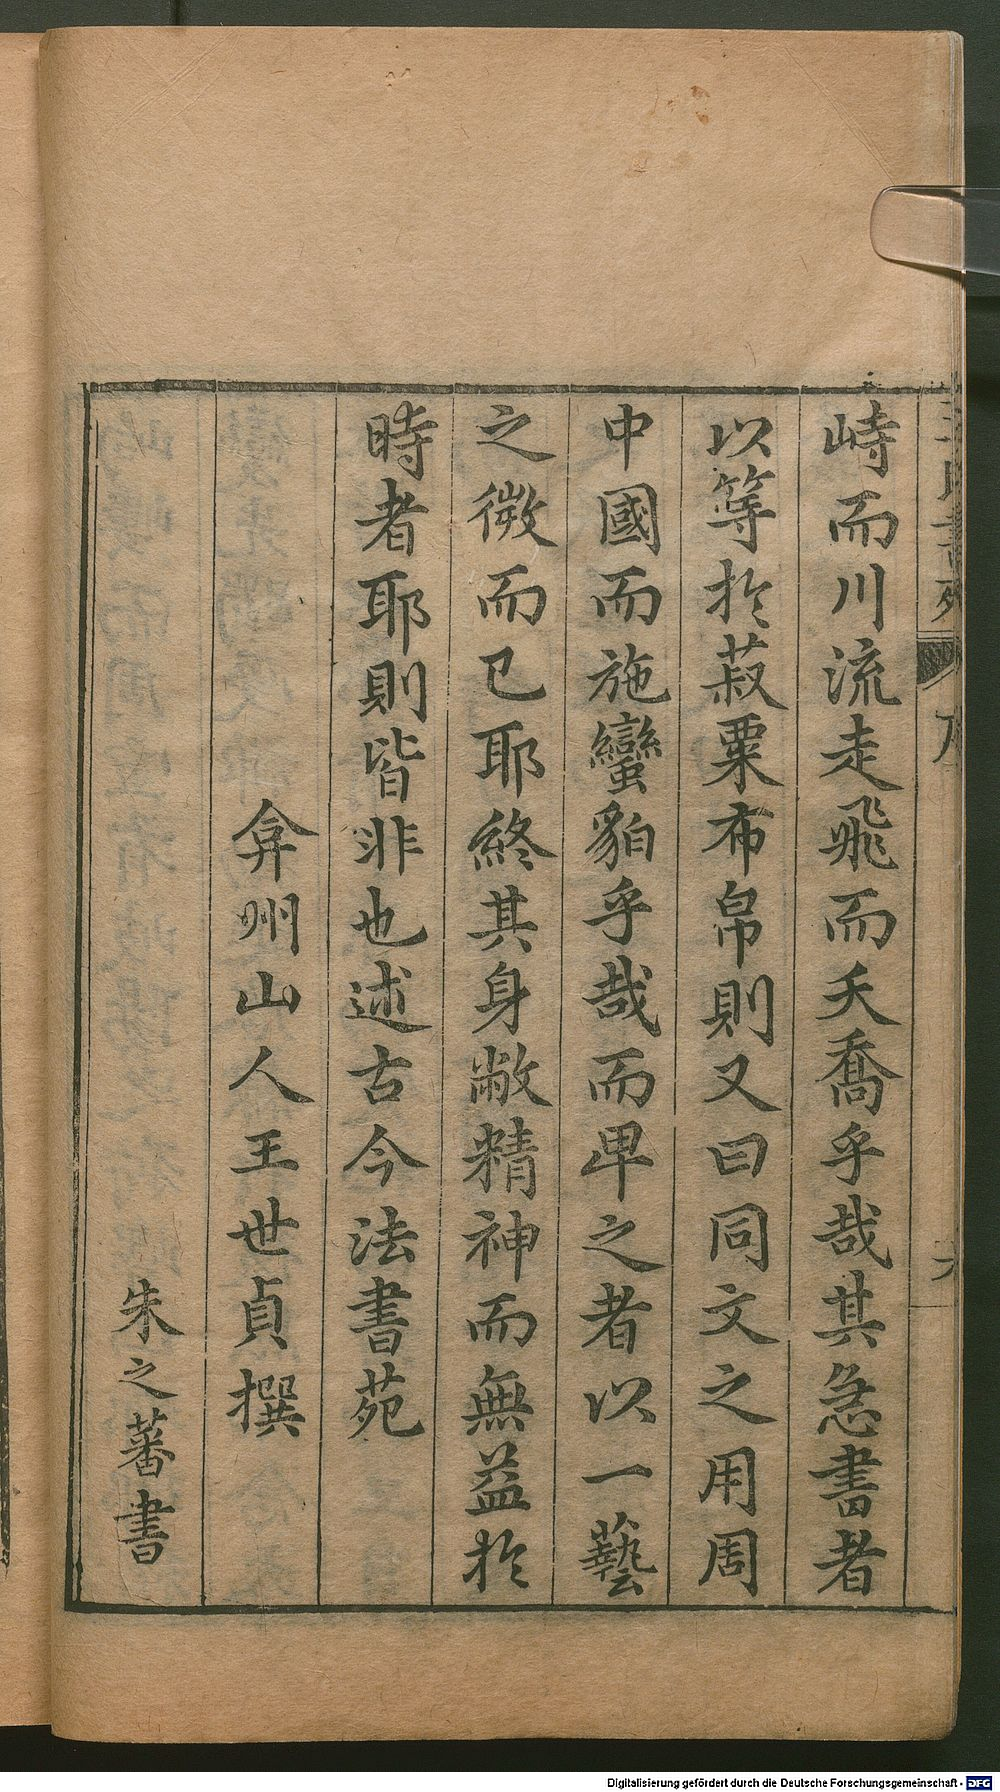 峙而川流走飛而夭喬乎哉其急書者
以等於菽粟布帛則又曰同文之用周
中國而施蠻貊乎哉而卑之者以一藝
之微而已耶終其身敝精神而無益於
時者耶則皆非也述古今法書苑
弇州山人王世貞撰
朱之蕃書
Digitalisierung gefördert durch die Deutsche Forschungsgemeinschaft - DFG